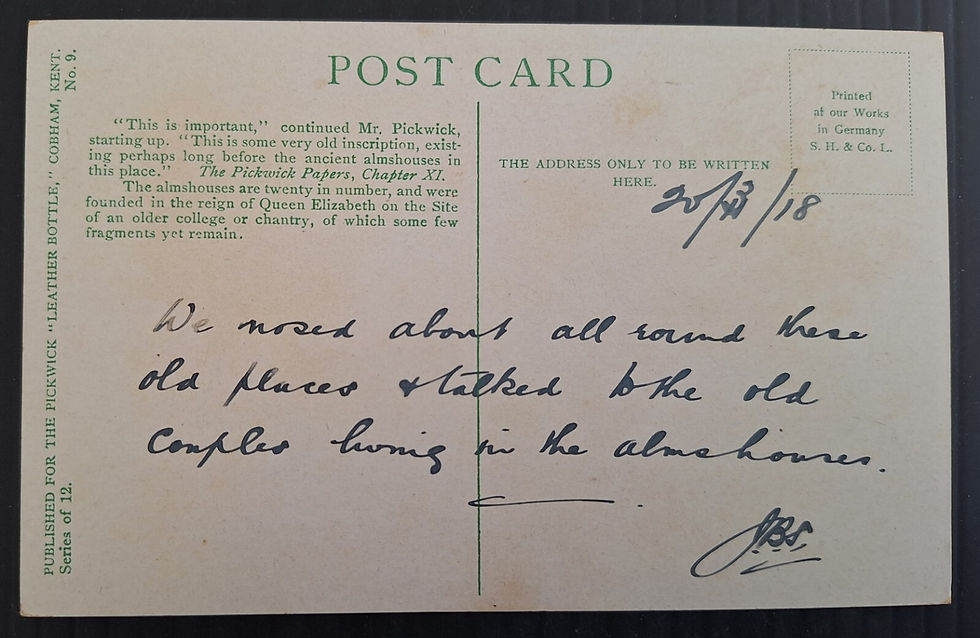 POST CARD
PUBLISHED FOR THE PICKWICK "LEATHER BOTTLE," COBHAM, KENT.
Series of 12.
No. 9.
"This is important," continued Mr. Pickwick,
starting up. "This is some very old inscription, exist-
ing perhaps long before the ancient almshouses in
this place." The Pickwick Papers, Chapter XI.
The almshouses are twenty in number, and were
founded in the reign of Queen Elizabeth on the Site
of an older college or chantry, of which some few
fragments yet remain.
THE ADDRESS ONLY TO BE WRITTEN
HERE.
Printed
at our Works
in Germany
S. H. & Co. L.
20/ /18
We nosed about all round these
old places & talked to the old
couples living in the almshouses.
JBS.